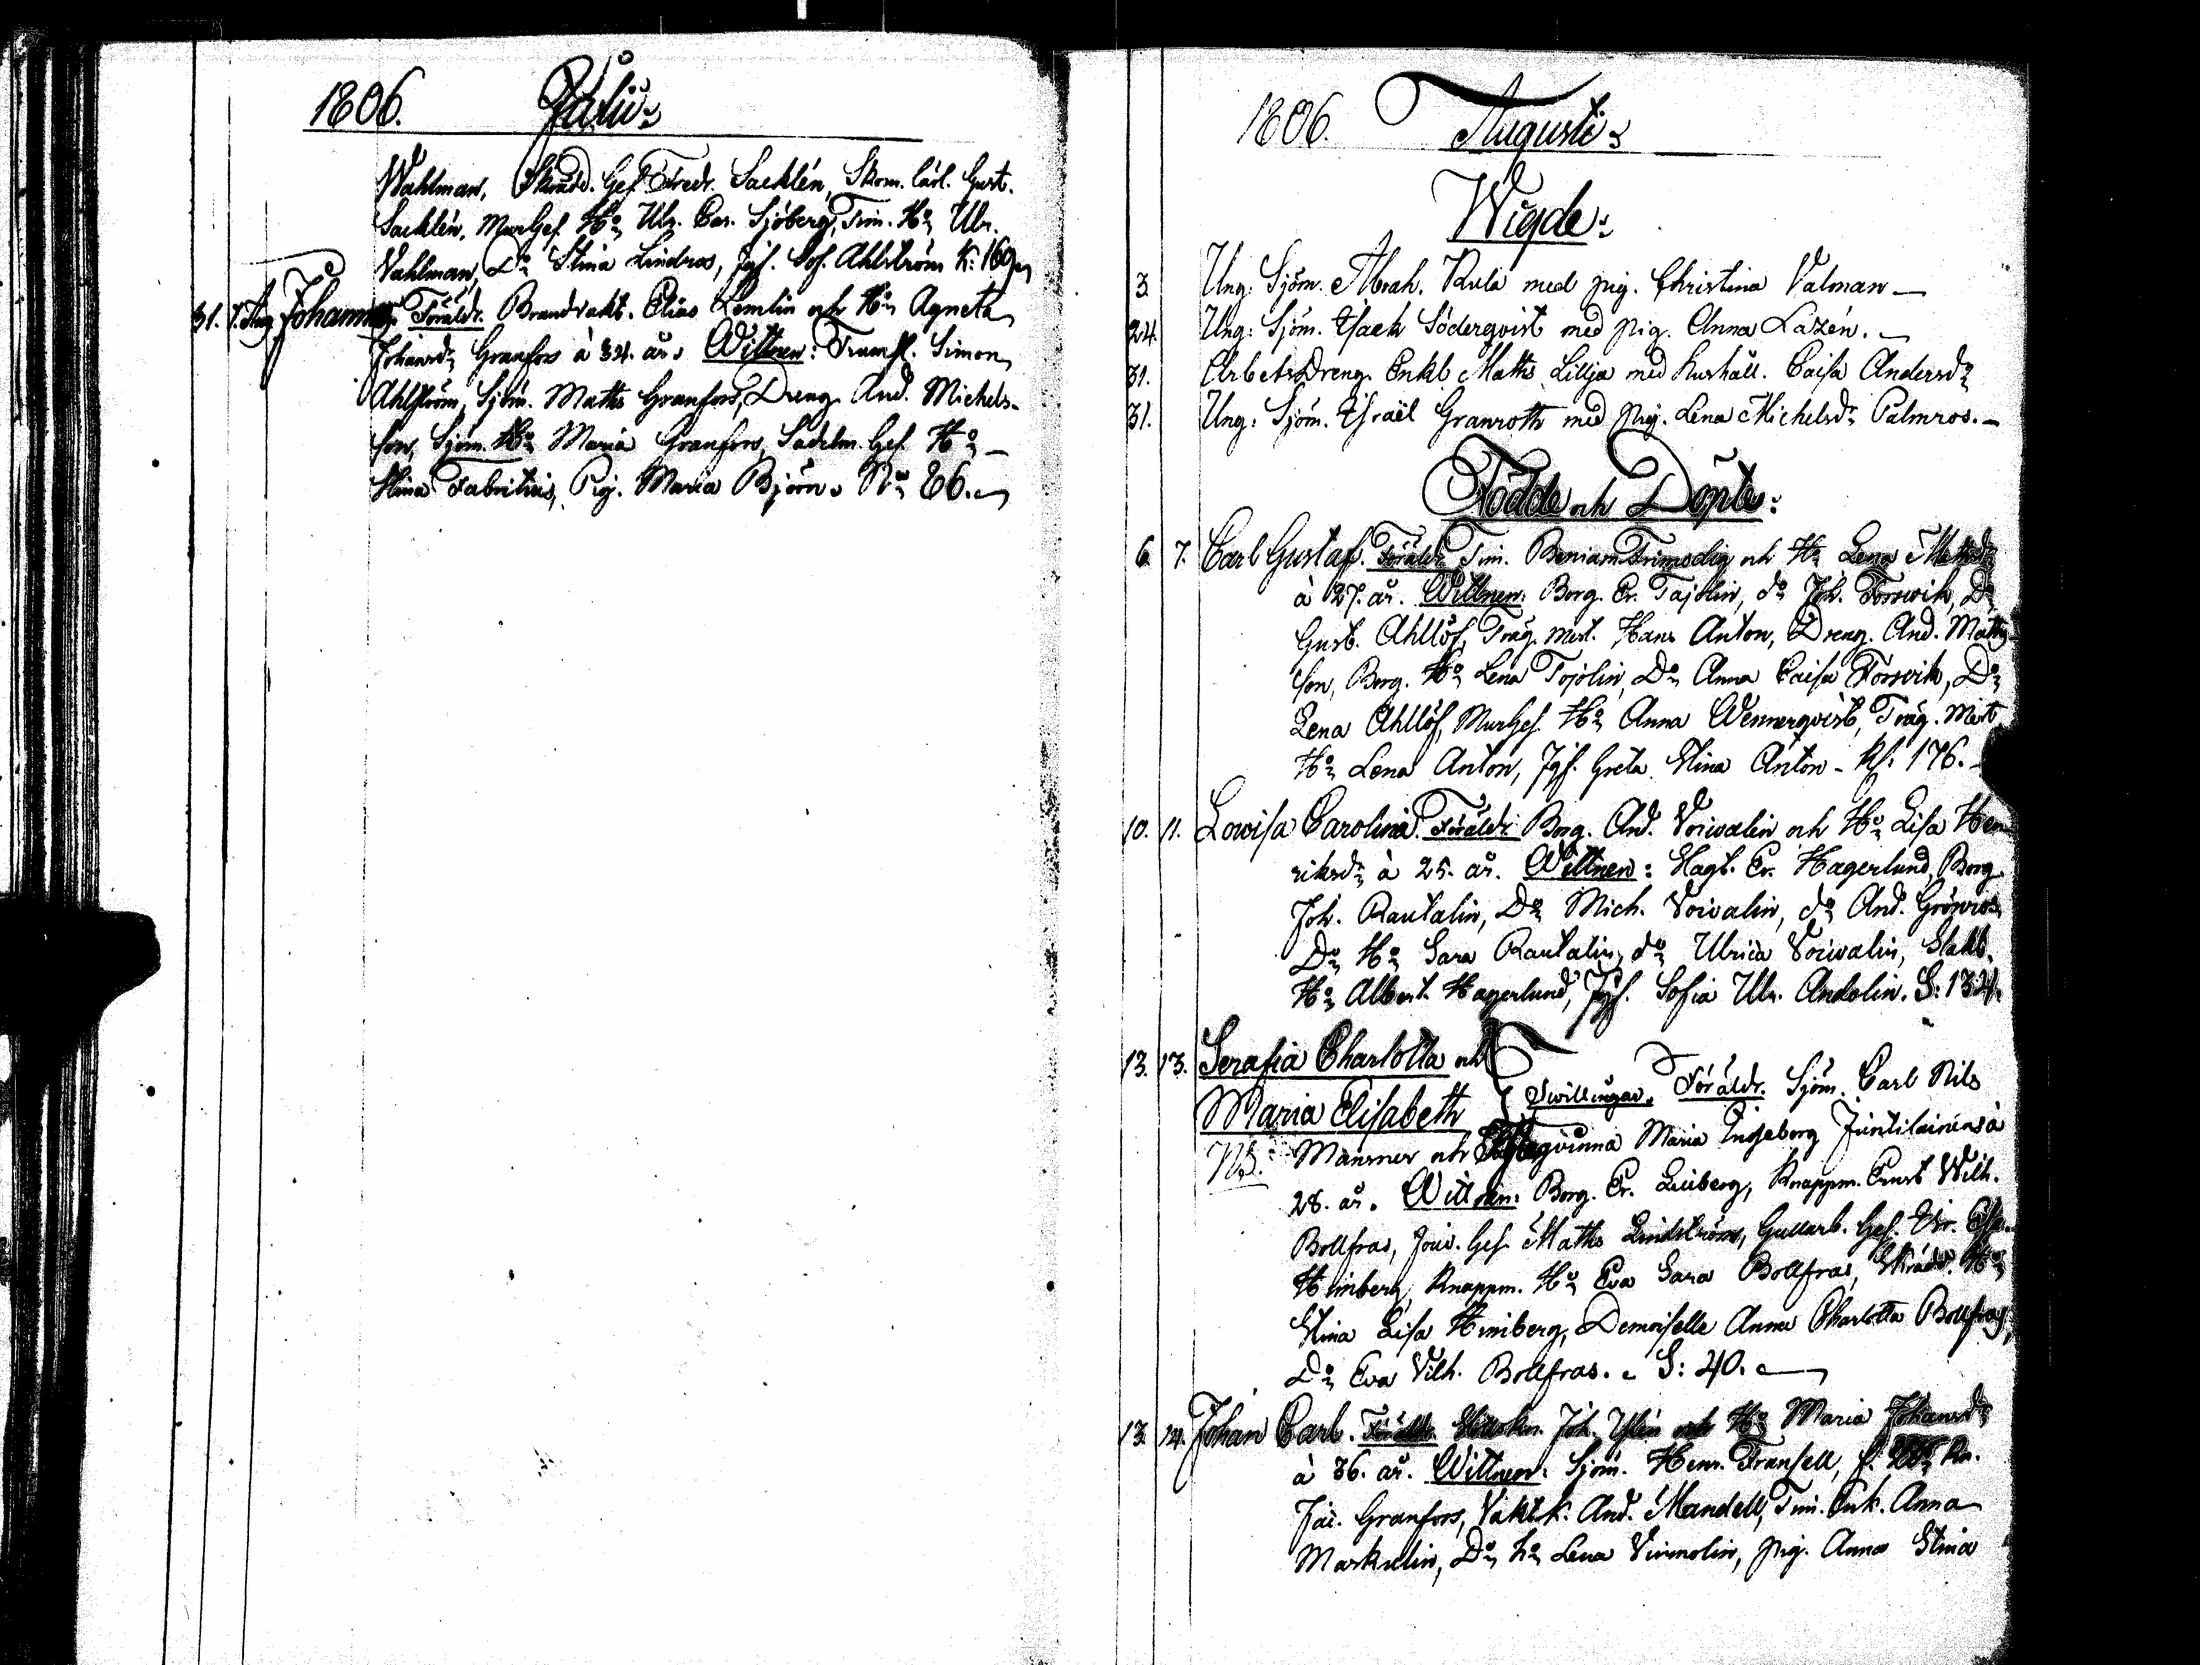 1806. Julii
Wahlman, Skrädd. Ges. Fredr. Sacklén, Skom. Carl. Gust.
Sacklén, MurGes. Ho Ulr. Cas. Sjöberg, Tim. Ho Ulr.
Vahlman, Do Stina Lindros, Jgf. Sof. Ahlström K: 169.
31. 1. Aug. Johannes. Föräldr. Brandvakt. Elias Lemlin och Ho Agneta
Johansdr Granfors à 34. år. Wittnen: Trumsl. Simon
Ahlström, Sjöm. Matts Granfors, Dreng And. Michels-
son, Sjöm. Ho Maria Granfors, Sadelm. Ges. Ho
Stina Fabritius, Pig. Maria Björn. No 86.
1806. Augusti
Wigde:
3. Ung: Sjöm. Abrah. Kula med pig. Christina Valman
24. Ung: Sjöm. Isack Söderqvist med pig. Anna Lazén.
31. ArbetsDreng. Enkl Matts Lilja med hushåll. Caisa Andersdr
31. Ung: Sjöm. Israël Granroth med pig. Lena Michelsdr Palmros.
Födde och Döpte:
6. 7. Carl Gustaf. Föräldr. Tim. Beniam Frimodig och Ho Lena
à 27. år. Wittnen: Borg. Er. Tojolin, do Joh. Forswik, Do
Gust. Ahllöf, Träg. mest. Hans Anton, Dreng. And. Matts
son, Borg. Ho Lena Tojolin, Do Anna Caisa Forswik, Do
Lena Ahllöf, MurGes. Ho Anna Wennerqvist, Träg. Mest
Ho Lena Anton, Jgf. Greta Stina Anton - Kl: 176.
10. 11. Lowisa Carolina. Föräldr. Borg. And. Voivalin och Ho Lisa Hen
riksdr à 25. år. Wittnen: Slagt. Er. Hagerlund, Borg
Joh. Rautalin, Do Mich. Voivalin, do And. Grönroos
Do Ho Sara Rautalin, do Ulrica Voivalin, Slakt.
Ho Albert. Hagerlund, Jgf. Sofia Ulr. Andolin. S: 134.
13. 13. Serafia Charlotta och
Maria Elisabeth } Twillingar. Föräldr. Sjöm. Carl Nils
NB. Mansner och Maria Ingeborg Juntilainens à
28. år. Wittnen: Borg. Er. Liiberg, Knappm. Ernst Wilh.
Bollfras, Ges. Matts Lindström, Gullarb. Ges.
Himberg, Knappm. Ho Eva Sara Bollfras, Skrädd. Ho
Stina Lisa Himberg, Demoiselle Anna Charlotta Bollfras,
Do Eva Vilh. Bollfras. S: 40.
13. 14. Johan Carl. Föräldr. Joh. och Ho Maria Johansdr
à 36. år. Wittnen: Sjöm. Henr. Fransell,
Jac. Granfors, Vakt.k. And. Mandell, Tim. Enk. Anna
Markulin, Do ho Lena Virmolin, pig. Anna Stina